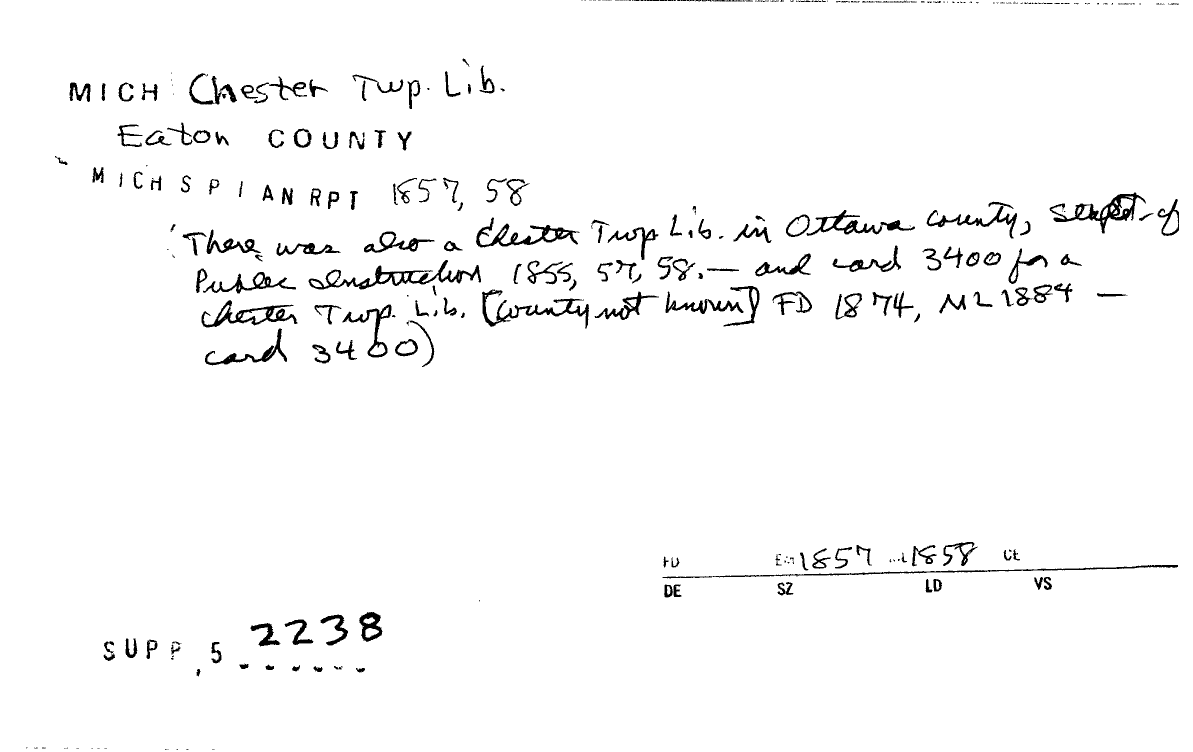 MICH Chester Twp. Lib.
Eaton COUNTY
MICH S P I AN RPT 1857, 58
(There was also a Chester Twp Lib. in Ottawa county, Supt. of
Public Instruction 1855, 57, 58. — and card 3400 for a
Chester Twp. Lib. [County not known] FD 1874, ML 1884 —
card 3400)
FD E 1857 1858 CE
DE SZ LD VS
SUPP. 5 2238